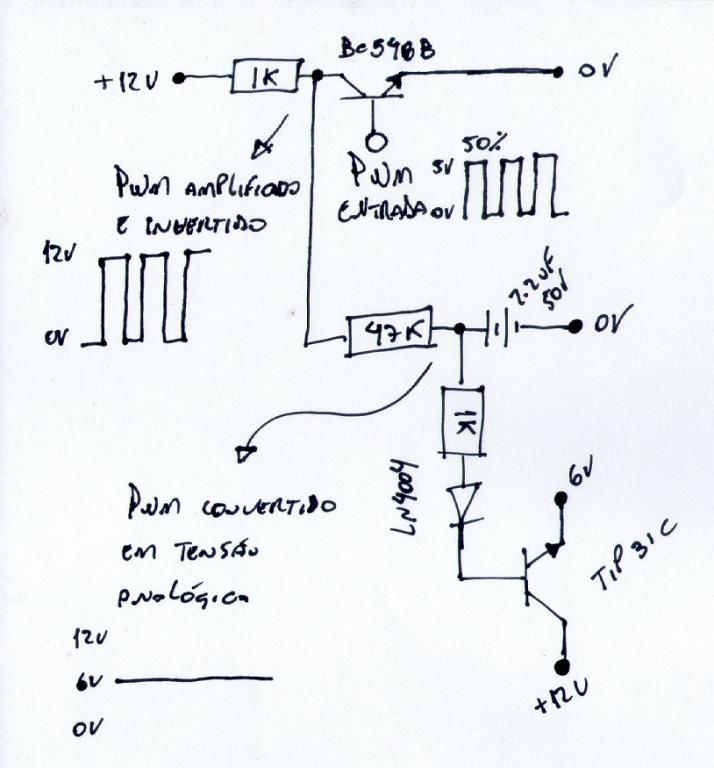 BC548B
+12V
1K
0V
50%
5V
0V
PWM
ENTRADA
PWM AMPLIFICADO
E INVERTIDO
12V
0V
2.2uF
50V
47K
0V
1K
LN4004
6V
TIP31C
+12V
PWM CONVERTIDO
EM TENSÃO
ANALÓGICA
12V
6V
0V